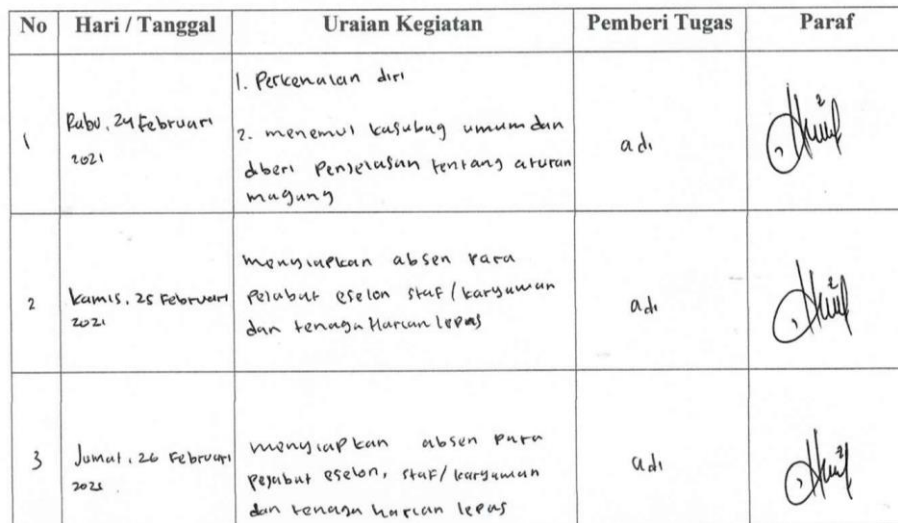 No Hari / Tanggal Uraian Kegiatan Pemberi Tugas Paraf
1
Rabu, 24 Februari
2021
1. Perkenalan diri
2. menemui kasubag umum dan
diberi Penjelasan tentang aturan
magang
adi
2
kamis, 25 Februari
2021
menyiapkan absen para
Pejabat eselon staf/karyawan
dan tenaga Harian lepas
adi
3
Jumat, 26 Februari
2021
menyiapkan absen para
pejabat eselon, staf/karyawan
dan tenaga harian lepas
adi